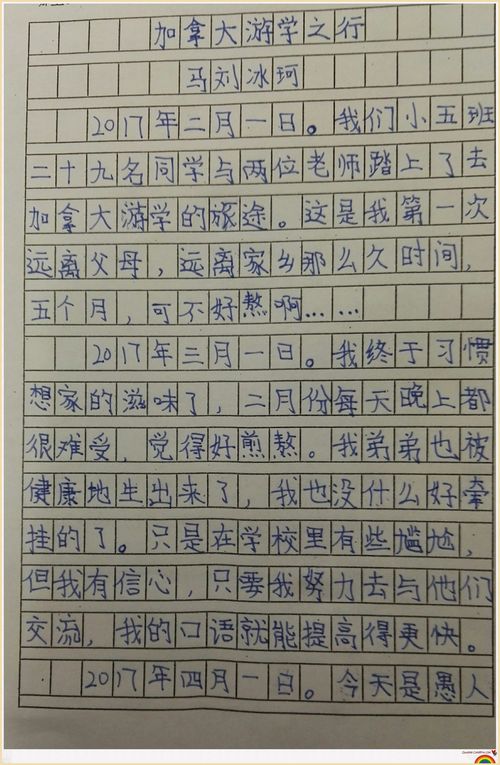 加拿大游学之行
马刘冰珂
2017年二月一日。我们小五班
二十九名同学与两位老师踏上了去
加拿大游学的旅途。这是我第一次
远离父母，远离家乡那么久时间，
五个月，可不好熬啊……
2017年三月一日。我终于习惯
想家的滋味了，二月份每天晚上都
很难受，觉得好煎熬。我弟弟也被
健康地生出来了，我也没什么好牵
挂的了。只是在学校里有些尴尬，
但我有信心，只要我努力去与他们
交流，我的口语就能提高得更快。
2017年四月一日。今天是愚人